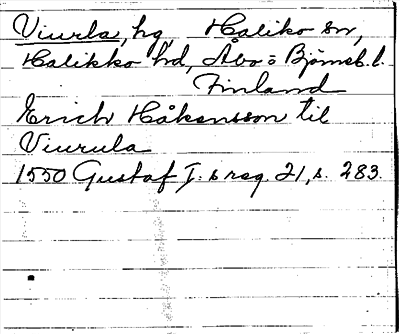 Viurla, hg, Haliko sn,
Halikko hd, Åbo = Björneb. l.
Finland
Erich Håkansson til
Viurula
1550 Gustaf I. s reg. 21, s. 283.